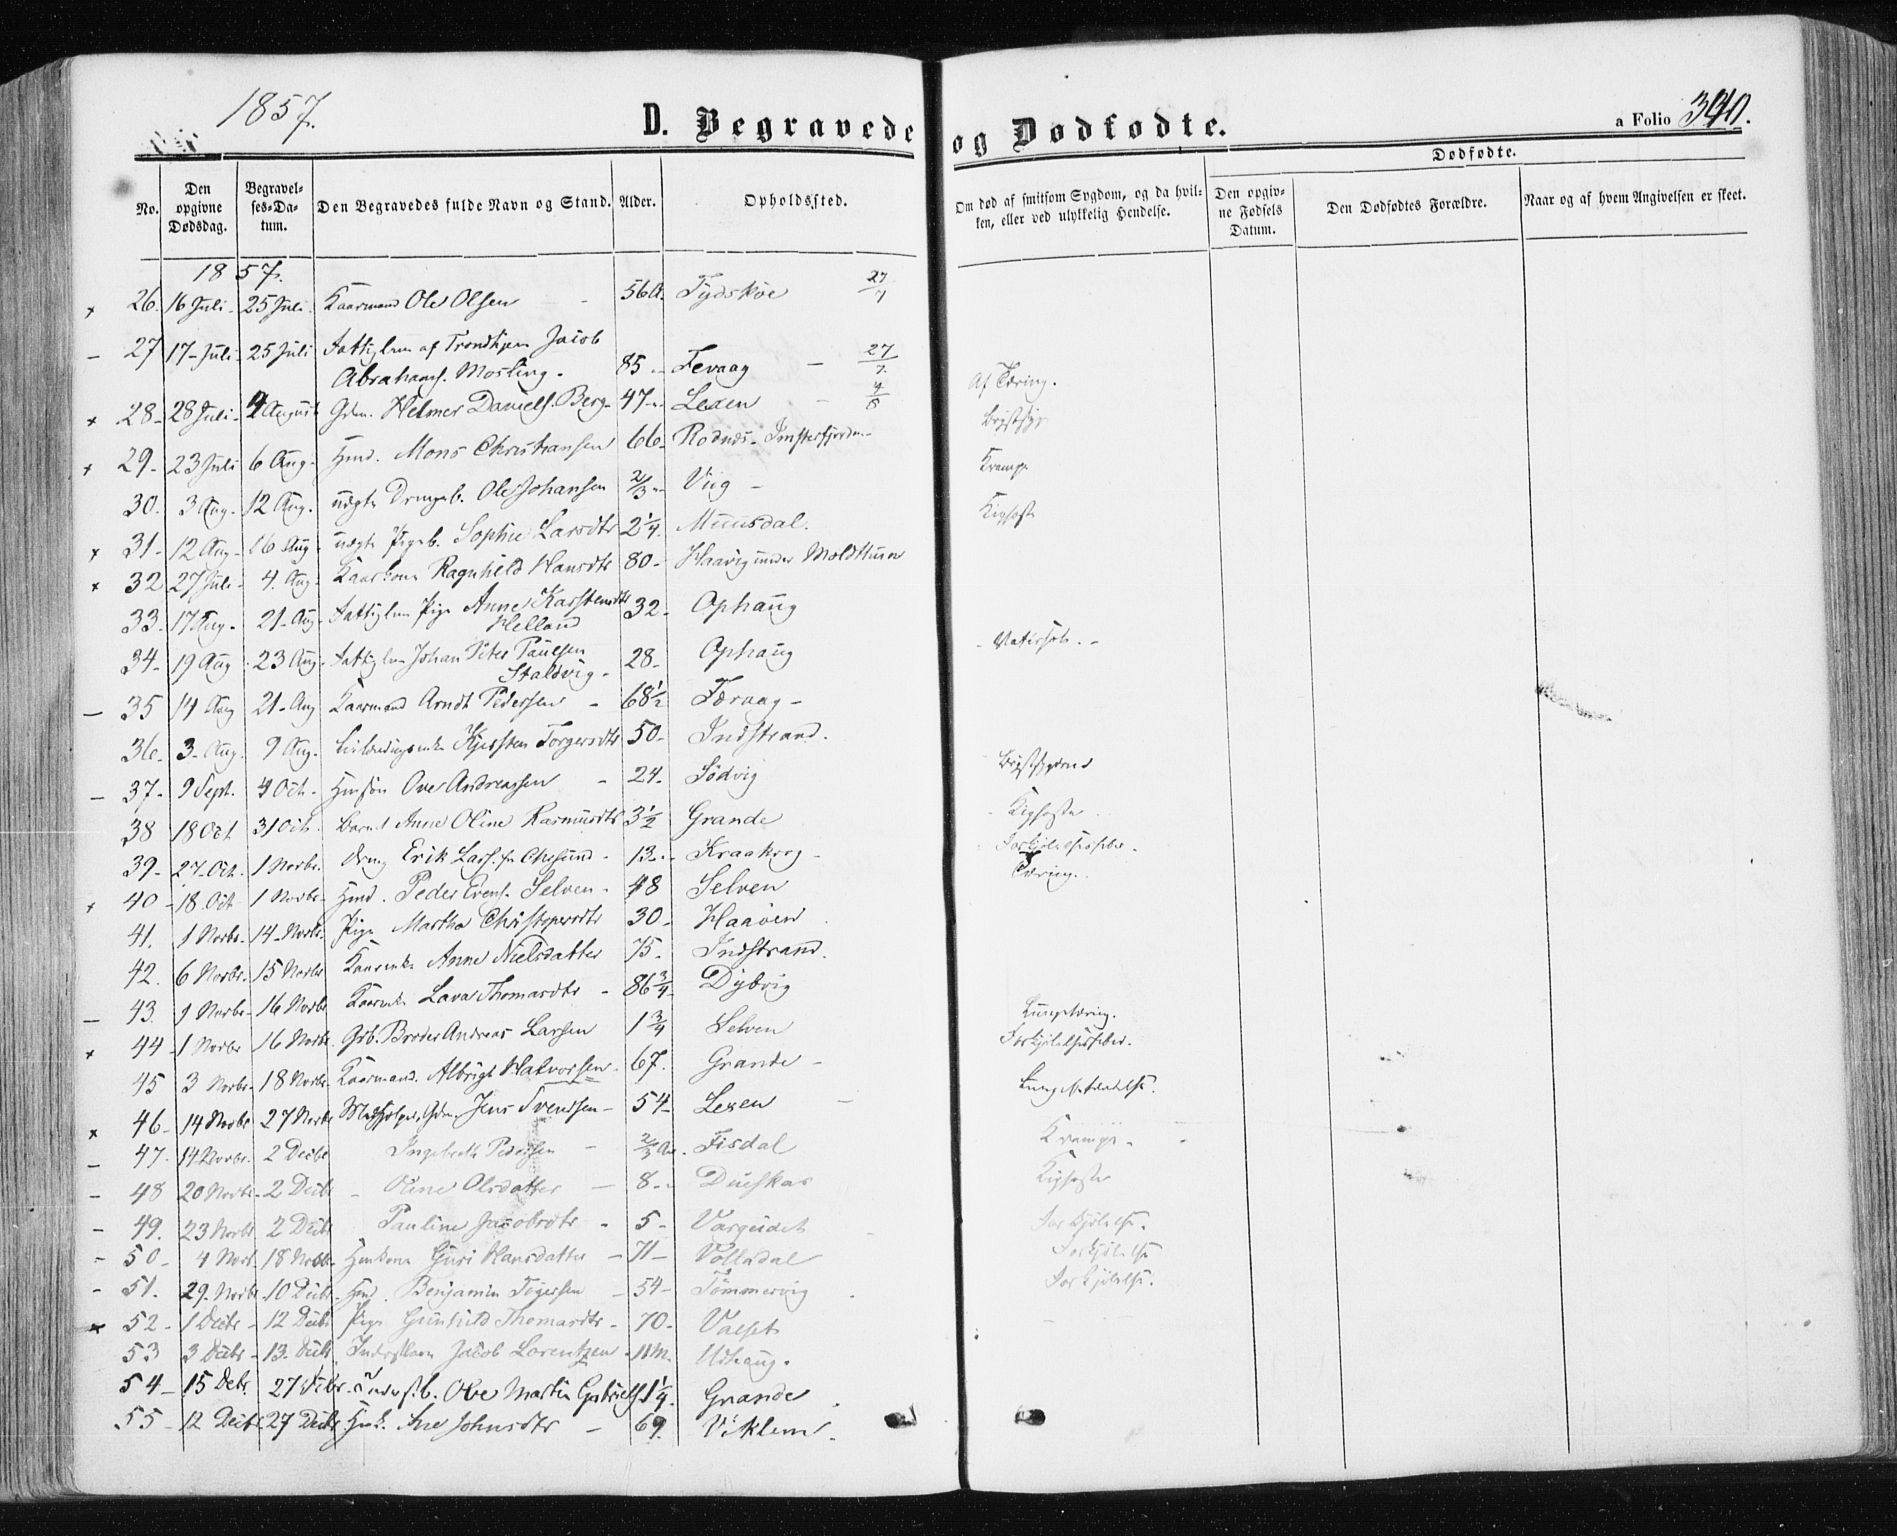 1857.
D. Begravede og Dødfødte.
a Folio 340.
No.
Den opgivne Dødsdag.
Begravelses-Datum.
Den Begravedes fulde Navn og Stand.
Alder.
Opholdssted.
Om død af smitsom Sygdom, og da hvilken, eller ved ulykkelig Hendelse.
Dødfødte.
Den opgivne Fødsels Datum.
Den Dødfødtes Forældre.
Naar og af hvem Angivelsen er skeet.
1857.
26. 16 Juli 25 Juli Kaarmand Ole Olsen 56 A. Tydskøe 27/7
27 17 Juli 25 Juli Fattiglem af Trondhjem Jacob
Abrahams. Mosling. 85 Fevaag 27/7
28 28 Juli 4 August Gdm. Helmer Daniels. Berg 47 Lexen 4/8 Af Tæring.
29 23 Juli 6 Aug. Hmd. Mons Christiansen 66 Rødnæs Brystsyge
30. 3 Aug. 12 Aug. uægte Drengeb. Ole Johansen 2/3 Viig Krampe
31 12 Aug. 16 Aug. uægte Pigeb. Sophie Larsdtr 2 1/4 Muusdal. Kighoste
32 27 Juli 4. Aug. Kaarkone Ragnhild Hansdtr 80 Haavig under
33 17 Aug. 21 Aug. Fattiglem Pige Anne Karstensdtr
Helland 32 Ophaug
34 19 Aug 23 Aug. Fattiglem Johan Peter Paulsen
Staldvig 28 Ophaug
35 14 Aug 21 Aug Kaarmand Arndt Pedersen 68 1/2 Færaag
36. 3 Aug. 9 Aug. Kjersten Torgersdtr 50 Indstrand.
37 9 Sept. 4 Oct. Ove Andreassen 24 Sødvig
38 18 Oct 31 Oct. Barnet Anne Oline Rasmusdtr 3 1/2 Grande Kighoste
39 27 Oct. 1 Novbr. Dreng Erik Lars. 13 Kraakvog
40 18 Oct 1 Novbr. Hmd. Peder Evens. Selven 48 Selven Tæring.
41. 1 Novbr. 14 Novbr. Pige Martha Christopersdtr 30 Haaøen
42. 6 Novbr. 15 Novbr Kaarenke Anne Nielsdatter 75 Indstrand.
43. 9 Novbr. 16 Novbr Kaarenke Lava Thomasdtr 86 3/4 Dybvig
44 1 Novbr 16 Novbr. Gdb. Broder Andreas Larsen 1 3/4 Selven Lungetæring.
45 3 Novbr. 18 Novbr. Kaarmand. Albrigt Halvorsen 67. Grande
46 14 Novbr 27 Novbr Gdm. Jens Svendsen 54 Lexen
47 14 Novbr. 2 Decbr Pedersen 2/3 Aar. Fisdal Krampe
48 20 Novbr. 2 Decbr Oline Olsdatter 8 Dueskar Kighoste
49. 23 Novbr 2 Decbr Pauline Jacobsdtr 5 Vargeidet Forkjølelse.
50 4 Novbr. 18 Novbr. Huuskone Guri Hansdatter 71 Volladal Forkjølelse
51. 29. Novbr. 10 Decbr. Hmd. Benjamin Tøgersen 54 Tømmervig Forkjølelse.
52 1 Decbr 12 Decbr. Pige Gunhild Thomasdtr 70 Valset
53 3 Decbr 13 Decbr. Jacob Lorentzen 11 M. Udhaug.
54 15 Decbr. 27 Decbr. Ove Martin Gabriels. 1 1/4. Grande
55 12 Decbr 27 Decbr Huusk. Ane Johnsdtr 69. Viklem.